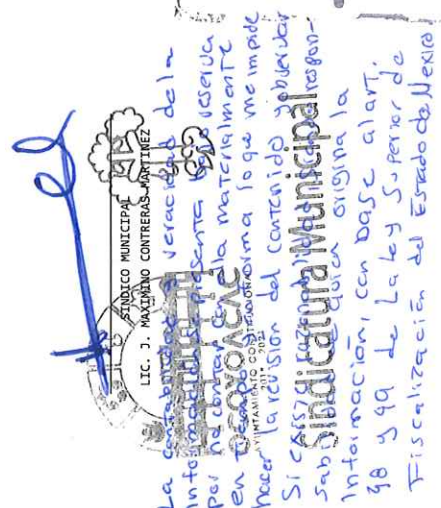 SÍNDICO MUNICIPAL
LIC. J. MAXIMINO CONTRERAS MARTINEZ
OCOYOACAC
AYUNTAMIENTO CONSTITUCIONAL
2019 - 2021
Sindicatura Municipal
La contabilidad y veracidad de la
Información presenta bajo reserva
por no contar con ella materialmente
en tiempo y forma lo que me impide
hacer la revisión del contenido y observar
Si existe responsabilidad
sabi de quien origina la
Información, con base al art.
98 y 99 de La Ley Superior de
Fiscalización del Estado de México